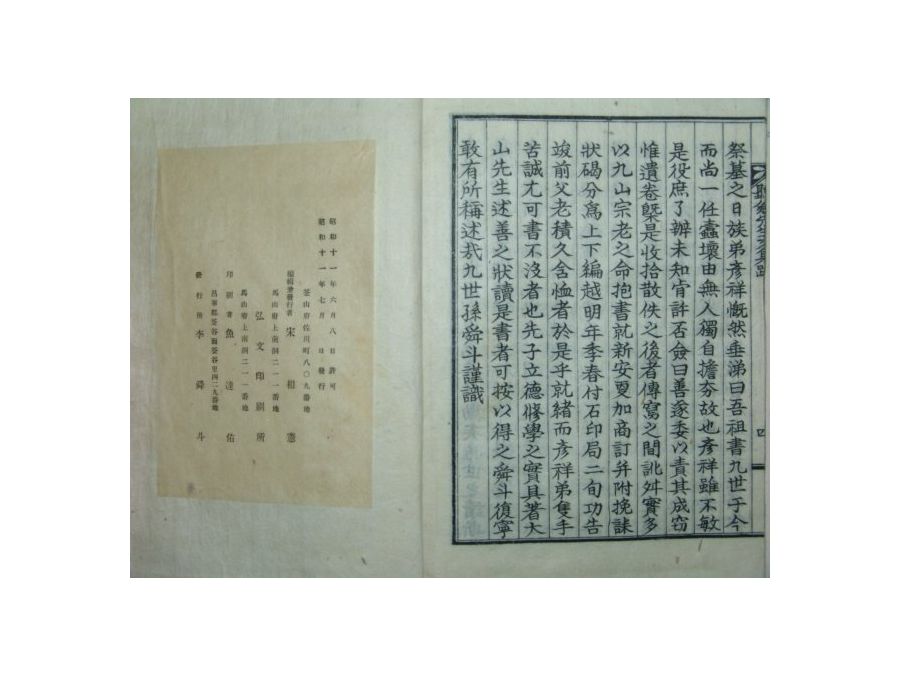 祭墓之日族弟彦祥慨然垂涕曰吾祖書九世于今
而尚一任蠧壞由無人獨自擔夯故也彦祥雖不敏
是役庶了辦未知肯許否僉曰善遂委以責其成窃
惟遺卷槩是收拾散佚之後者傳寫之間訛舛實多
以九山宗老之命抱書就新安更加商訂并附挽誄
狀碣分爲上下編越明年季春付石印局二旬功告
竣前父老積久含恤者於是乎就緒而彦祥弟隻手
苦誠尤可書不沒者也先子立德修學之實具著大
山先生述善之狀讀是書者可按以得之舜斗復寧
敢有所稱述哉九世孫舜斗謹識
四
昭和十一年六月八日許可
昭和十一年七月 日發行
釜山府佐川町八〇九番地
編輯兼發行者 宋相憲
馬山府上南洞二一一番地
弘文印刷所
馬山府上南洞二一一番地
印刷者 魚達佑
昌寧郡釜谷面釜谷里四二九番地
發行所 李舜斗